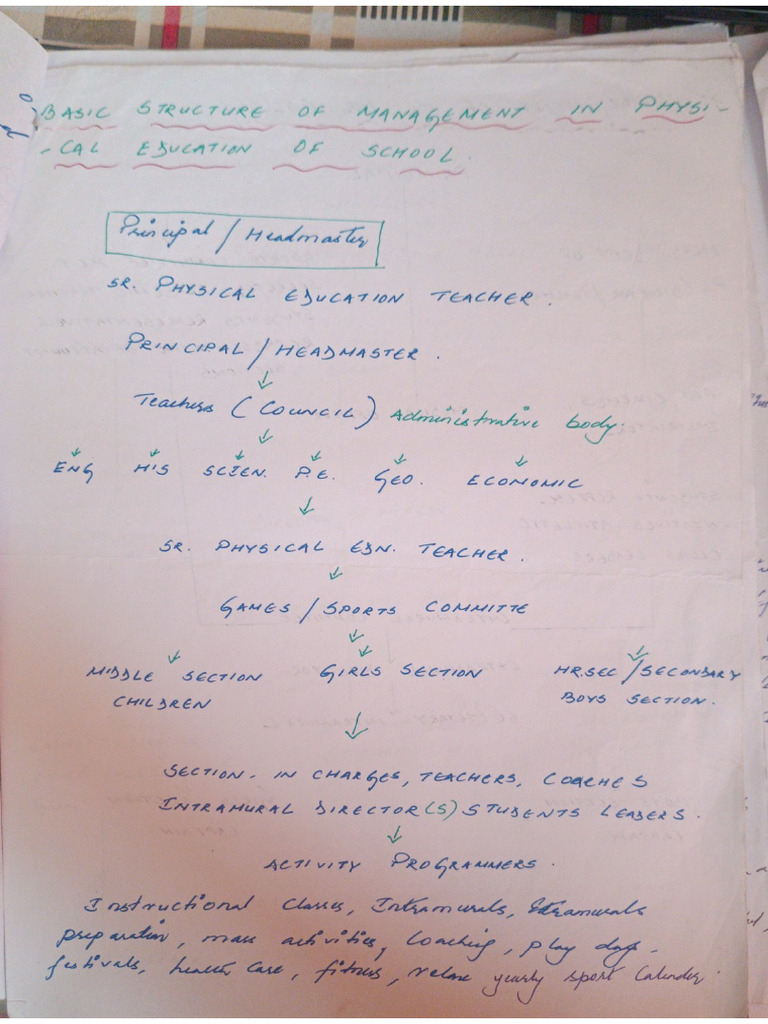 BASIC STRUCTURE OF MANAGEMENT IN PHYSI-
-CAL EDUCATION OF SCHOOL.
Principal / Headmaster
SR. PHYSICAL EDUCATION TEACHER.
PRINCIPAL / HEADMASTER.
Teachers (COUNCIL) Administrative body.
ENG HIS SCIEN. P.E. GEO. ECONOMIC
SR. PHYSICAL EDN. TEACHER.
GAMES / SPORTS COMMITTE
MIDDLE SECTION GIRLS SECTION HR.SEC / SECONDARY
CHILDREN BOYS SECTION.
SECTION - IN CHARGES, TEACHERS, COACHES
INTRAMURAL DIRECTOR(S) STUDENTS LEADERS.
ACTIVITY PROGRAMMERS.
Instructional Classes, Intramurals, Extramurals
preparation, mass activities, Coaching, play days-
festivals, health Case, fitness, relax yearly sport Calender.